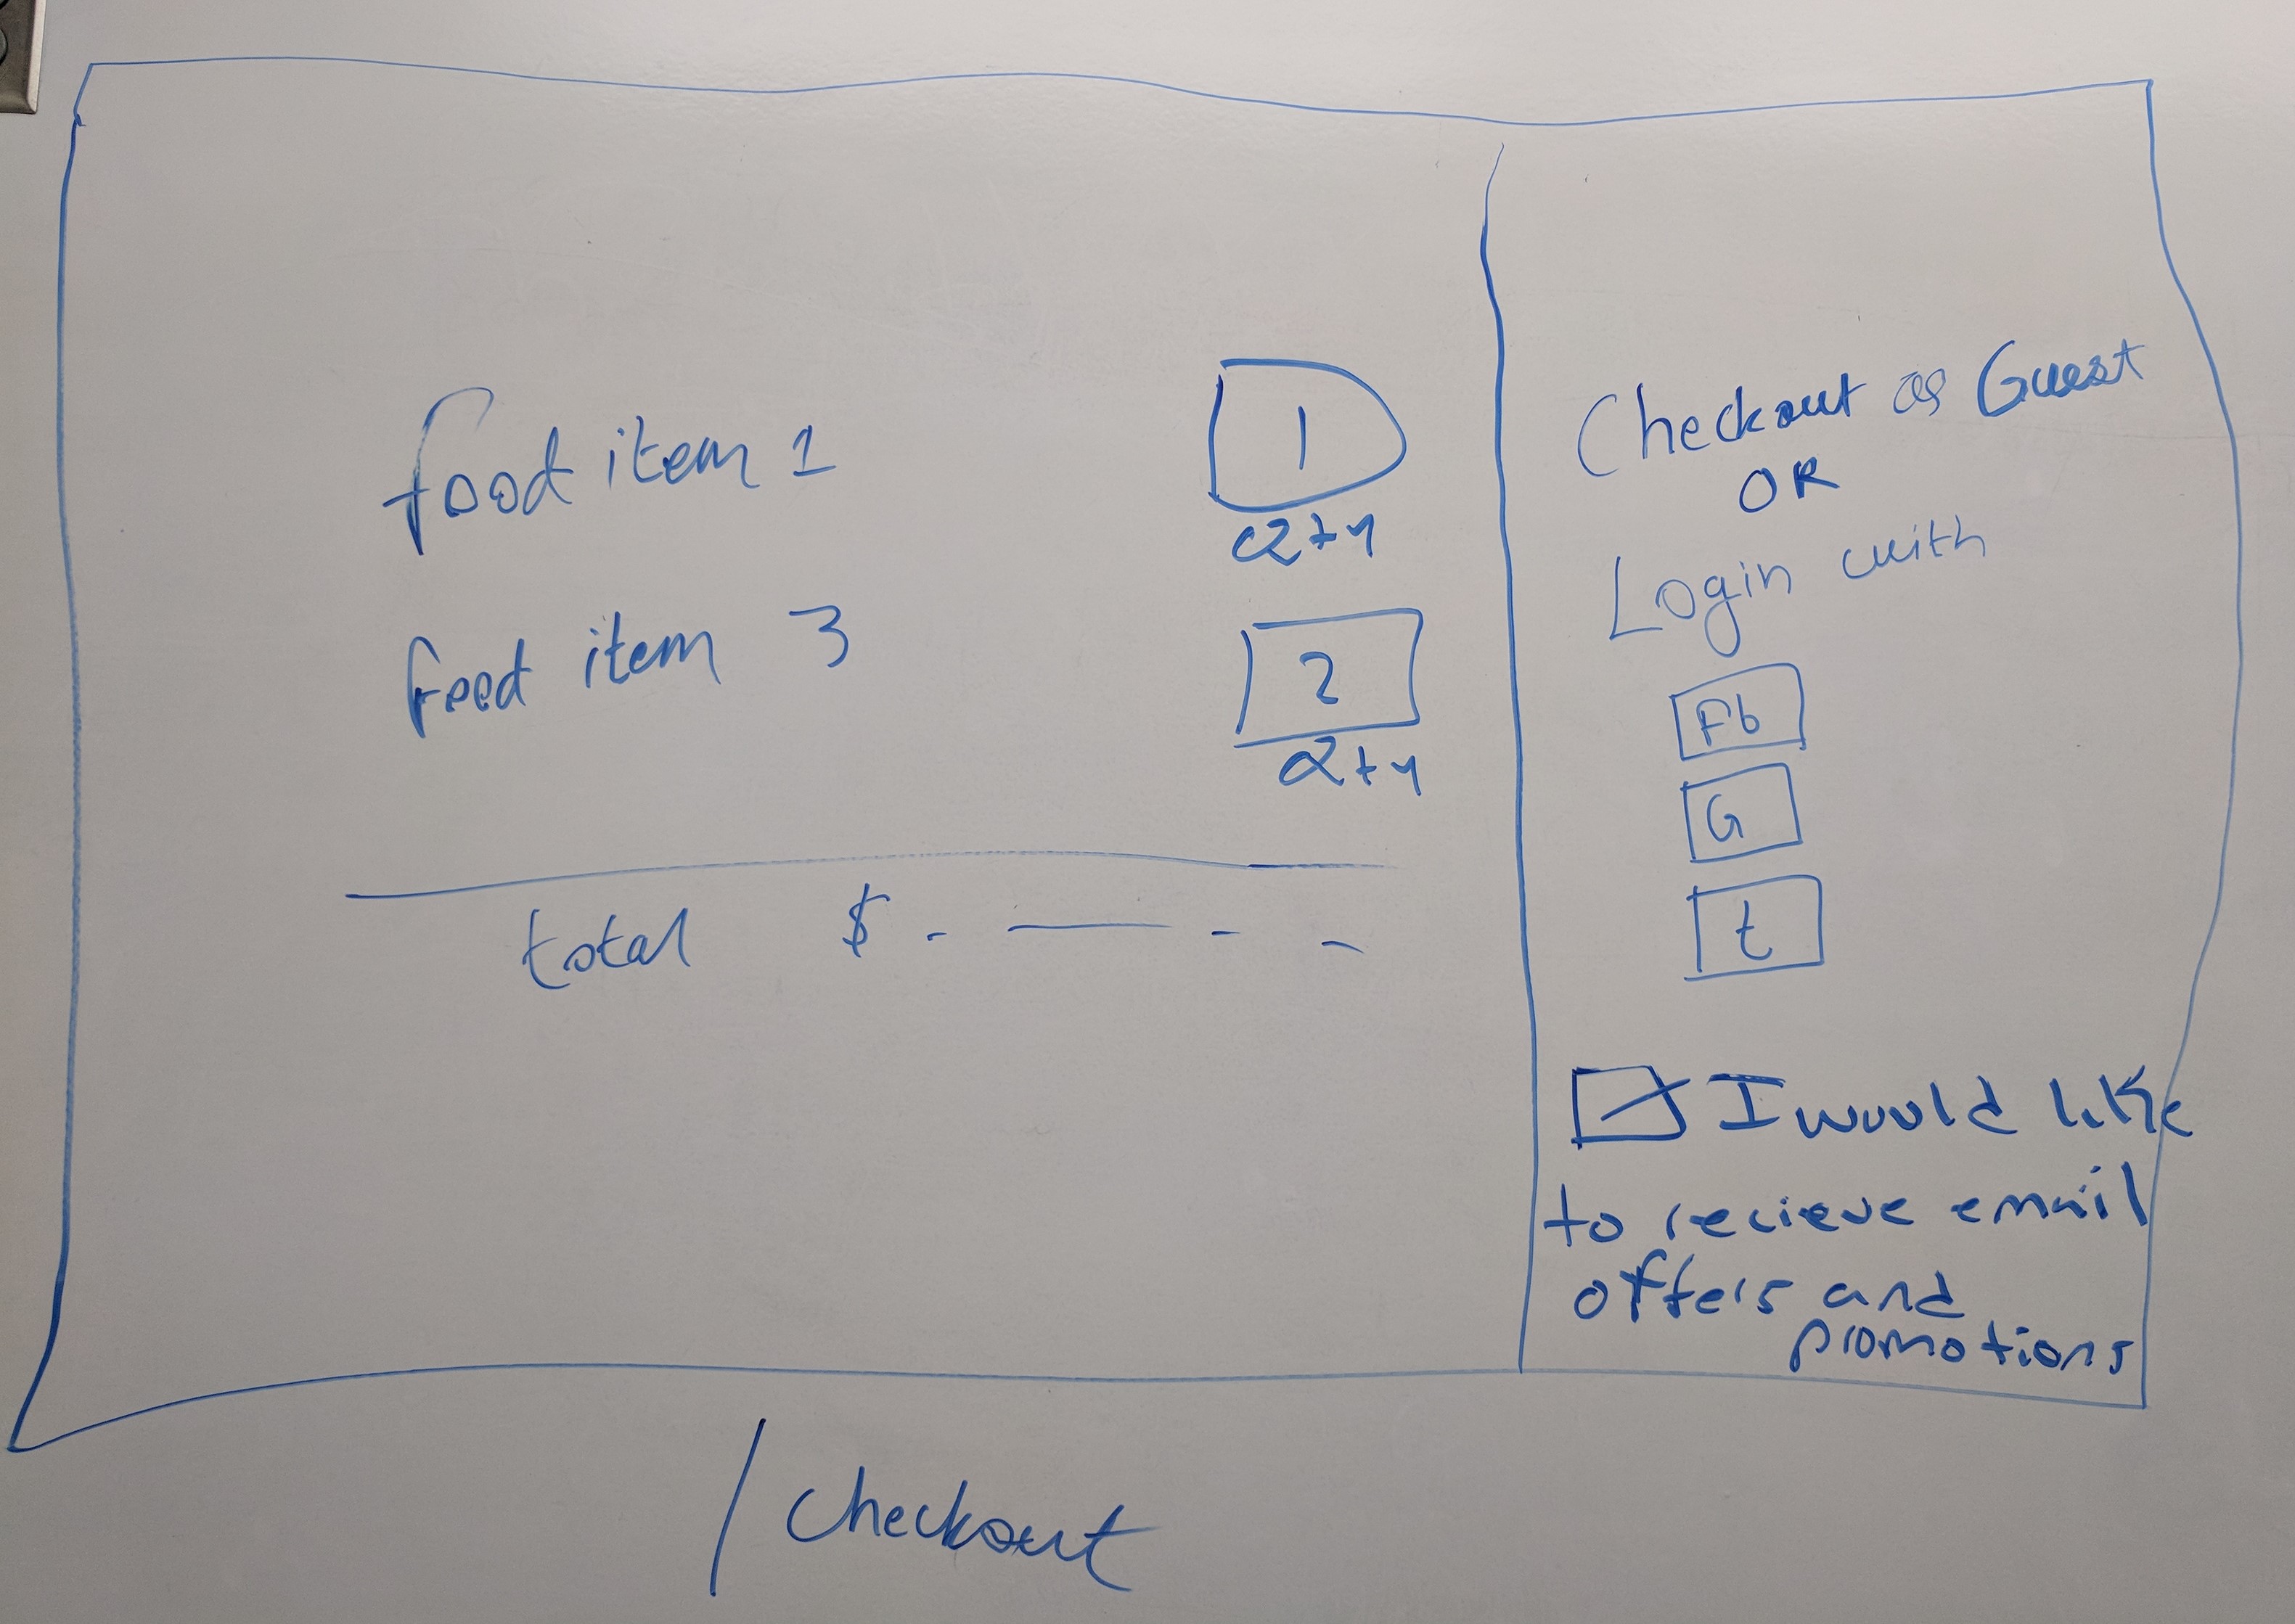 food item 1
1
Qty
food item 3
2
Qty
total $ - — - -
Checkout as Guest
OR
Login with
Fb
G
t
I would like
to recieve email
offers and
promotions
/ Checkout